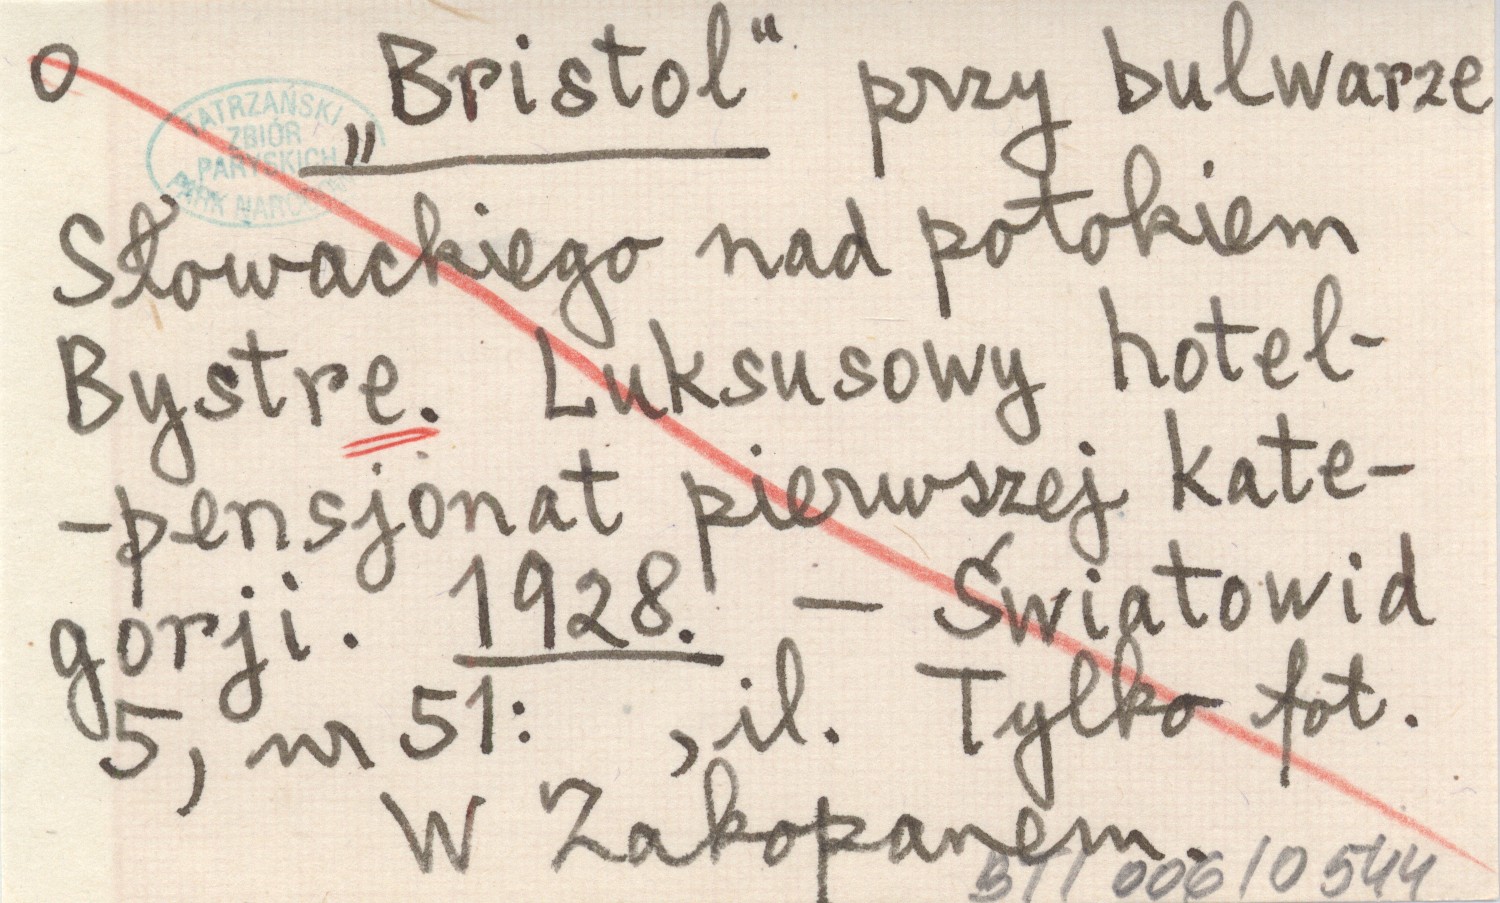 O „Bristol” przy bulwarze
TATRZAŃSKI
ZBIÓR
PARYSKICH
PARK NARODOWY
Słowackiego nad potokiem
Bystre. Luksusowy hotel-
-pensjonat pierwszej kate-
gorji. 1928. — Światowid
5, nr 51: , il. Tylko fot.
W Zakopanem.
BT/006/0544